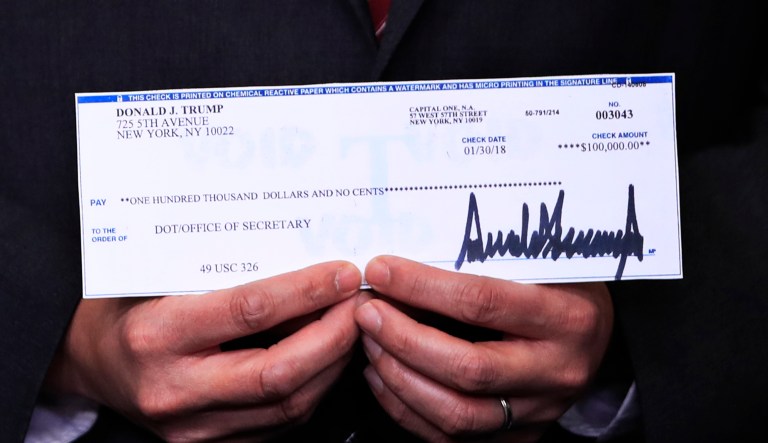 THIS CHECK IS PRINTED ON CHEMICAL REACTIVE PAPER WHICH CONTAINS A WATERMARK AND HAS MICRO PRINTING IN THE SIGNATURE LINE
DONALD J. TRUMP
725 5TH AVENUE
NEW YORK, NY 10022
CAPITAL ONE, N.A.
57 WEST 57TH STREET
NEW YORK, NY 10019
50-791/214
NO.
003043
CHECK DATE
01/30/18
CHECK AMOUNT
****$100,000.00**
PAY **ONE HUNDRED THOUSAND DOLLARS AND NO CENTS************************************
TO THE
ORDER OF
DOT/OFFICE OF SECRETARY
49 USC 326
Donald Trump
MP